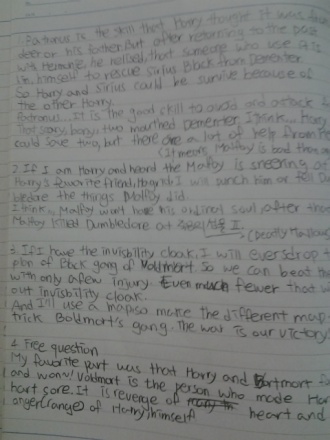 1. Patronus is the skill that Harry thought it was from
deer or his father. But after returning to the past
with Hermione he realized, that someone who use it is
I'm, himself to rescue Sirius Black from Dementer.
So Harry and Sirius could be survive because of
the other Harry.
Patronus... It is the good skill to avoid and attack
That scary, bony, two mouthed Dementer. I think... Harry
could save two, but there are a lot of help from
(It means, Malfoy is bad than
2. If I am Harry and heard the Malfoy is sneering
Harry's favorite friend, Hagrid, I will punch him or tell
the things Malfoy did.
I think.. Malfoy won't have his original soul, after
Malfoy killed Dumbledore at
(Deathly Hallows
3. If I have the invisibility cloak, I will eversdrop
plan of Black gang of Voldmort So we can beat
with only a few injury. Even much fewer that
out invisibility cloak.
And I'll use a map so make the different map
trick Boldmort's gang. The war is our victory
4. Free question
My favorite part was that Harry and Voldmort
and won! Voldmort is the person who made Har
hart sore. It is revenge of heart and
anger(range) of Harry himself